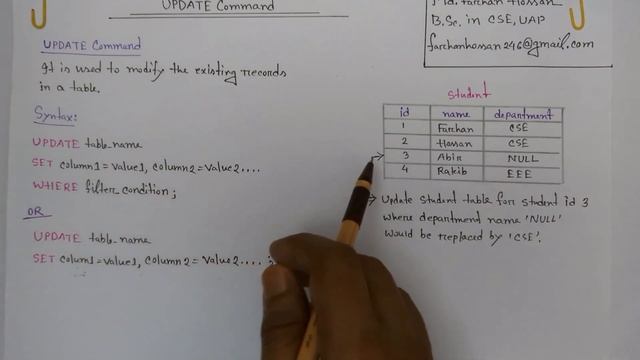 UPDATE Command
Md. Farhan Hossan
B.Sc. in CSE, UAP
farhanhossan246@gmail.com
UPDATE Command
It is used to modify the existing records
in a table.
Syntax:
UPDATE table_name
SET column1=value1, column2=value2....
WHERE filter_condition;
OR
UPDATE table_name
SET colum1=value1, column2=value2....;
Student
id name department
1 Farhan CSE
2 Hossan CSE
3 Abir NULL
4 Rakib EEE
Update student table for student id 3
where department name 'NULL'
would be replaced by 'CSE'.